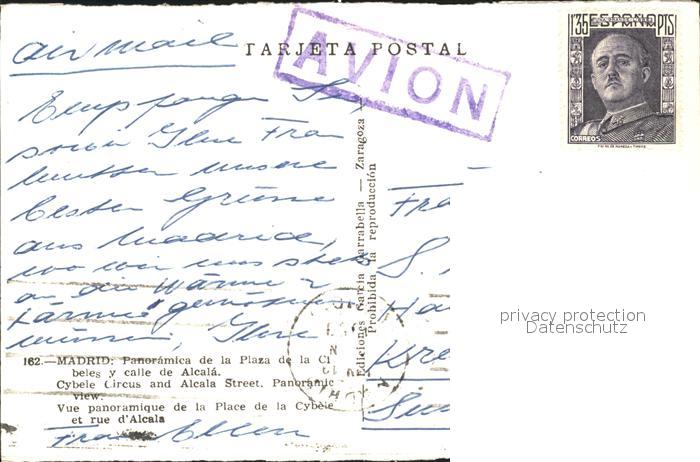 air mail
TARJETA POSTAL
AVION
1'35 ESPAÑA PTS
CORREOS
Empfangen Sie,
sowie Ihre Frau
Mutter unsere
besten Grüsse
aus Madrid,
wo wir uns stets
an die Wärme &
Lärme gewöhnen
müssen, Ihre
Frau Ellen
162.—MADRID: Panorámica de la Plaza de la Ci
beles y calle de Alcalá.
Cybele Circus and Alcala Street. Panoramic
view.
Vue panoramique de la Place de la Cybèle
et rue d'Alcala
Ediciones García Garrabella — Zaragoza
Prohibida la reproducción
Fra
S.
Ha
Kre
privacy protection
Datenschutz